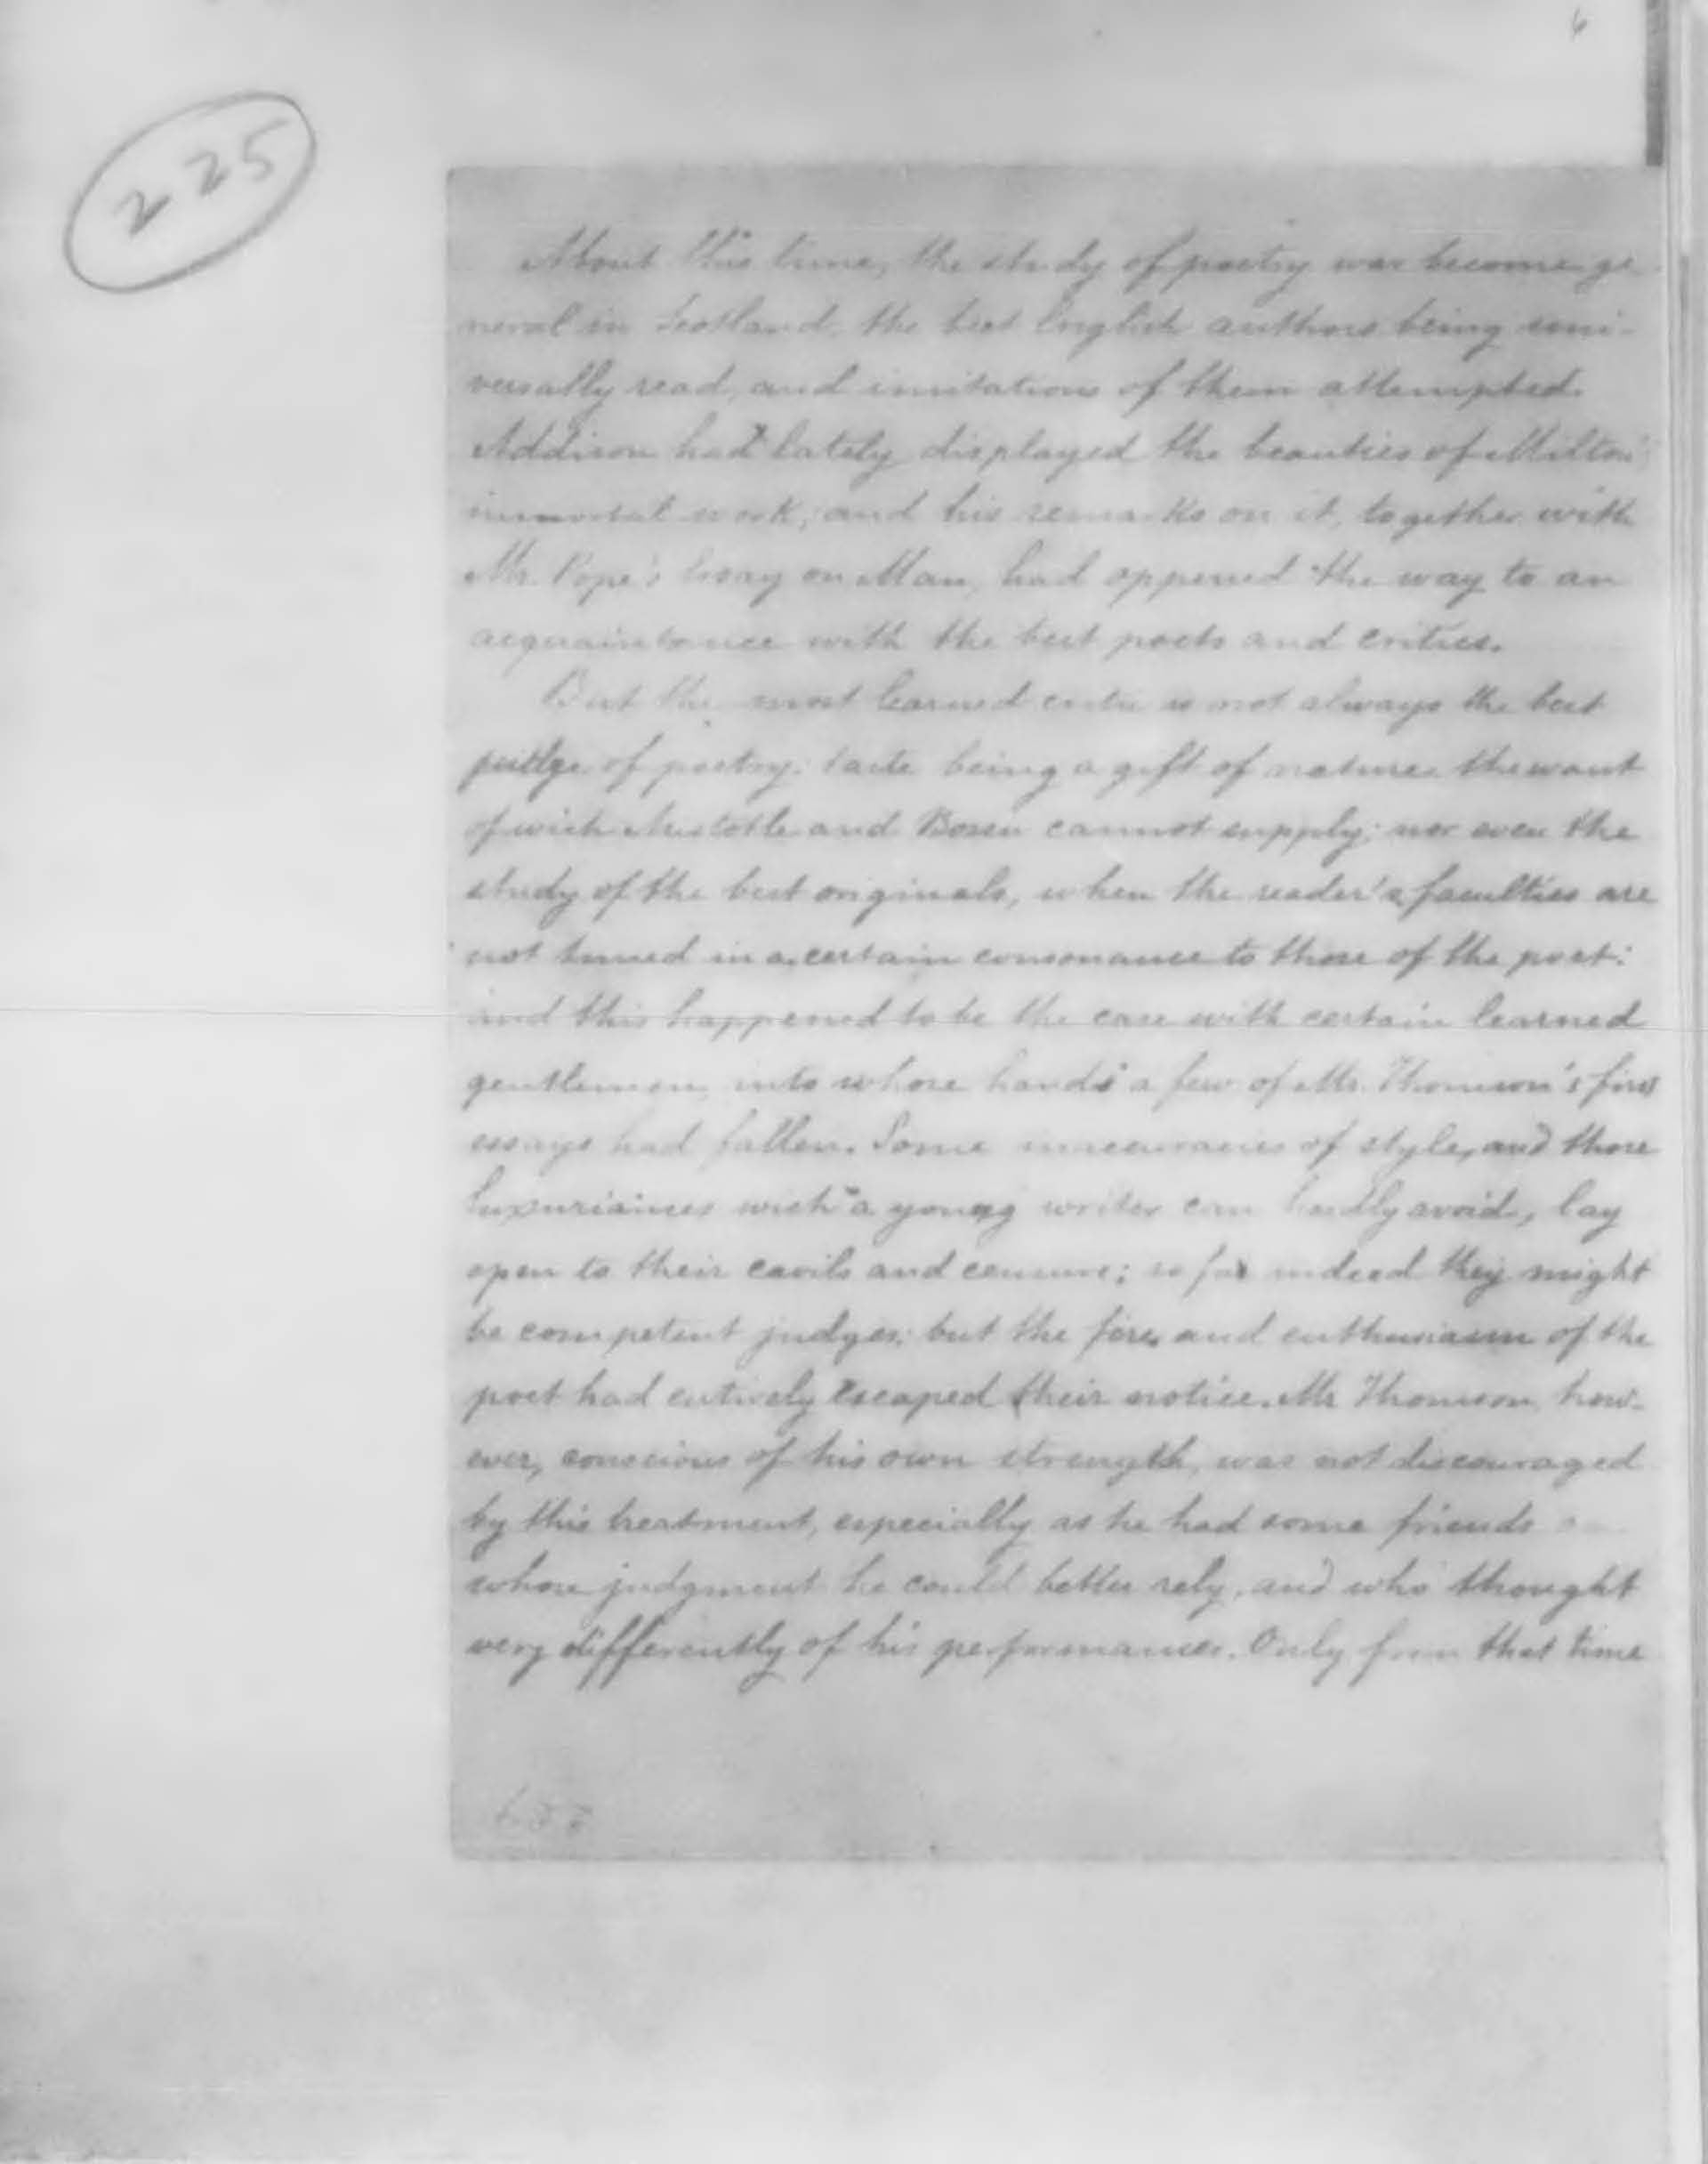 6
225
About this time, the study of poetry was become ge
neral in Scotland, the best English authors being uni-
versally read, and imitations of them attempted.
Addison had lately displayed the beauties of Milton's
immortal work; and his remarks on it, together with
Mr. Pope's Essay on Man, had oppened the way to an
acquaintance with the best poets and critics.
But the most learned critic is not always the best
judge of poetry; taste being a gift of nature the want
of wich Aristotle and Bossu cannot supply; nor even the
study of the best originals, when the reader's faculties are
not tuned in a certain consonance to those of the poet:
and this happened to be the case with certain learned
gentlemen, into whose hands a few of Mr. Thomson's first
essays had fallen. Some inaccuracies of style, and those
luxuriances wich a young writer can hardly avoid, lay
open to their cavils and censure; so far indeed they might
be competent judges; but the fire, and enthusiasm of the
poet had entirely escaped their notice. Mr Thomson, how-
ever, conscious of his own strength, was not discouraged
by this treatment, especially as he had some friends
whose judgment he could better rely, and who thought
very differently of his performances. Only from that time